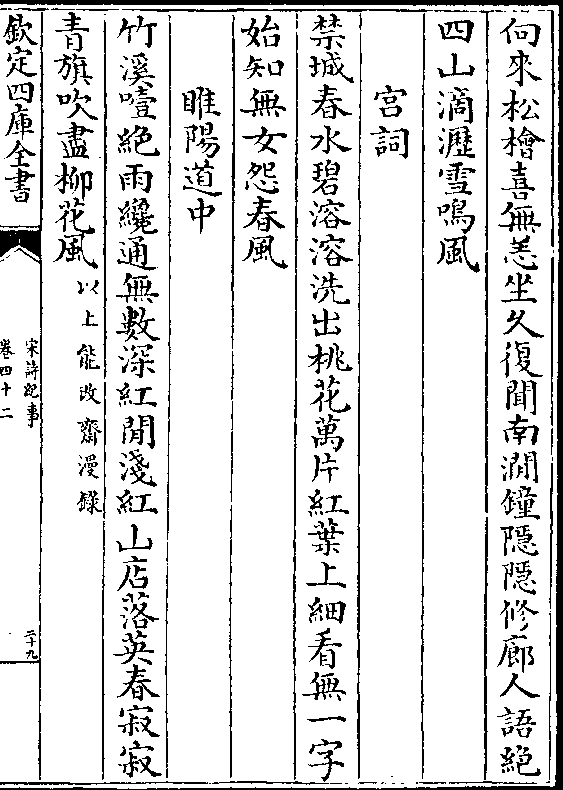 向來松檜喜無恙坐久復聞南澗鐘隱隱修廊人語絶
四山滴瀝雪鳴風
宫詞
禁城春水碧溶溶洗出桃花萬片紅葉上細看無一字
始知無女怨春風
睢陽道中
竹溪噎絶雨纔通無數深紅閒淺紅山店落英春寂寂
青旗吹盡柳花風以上能改齋漫録
欽定四庫全書
宋詩紀事
卷四十二
二十九